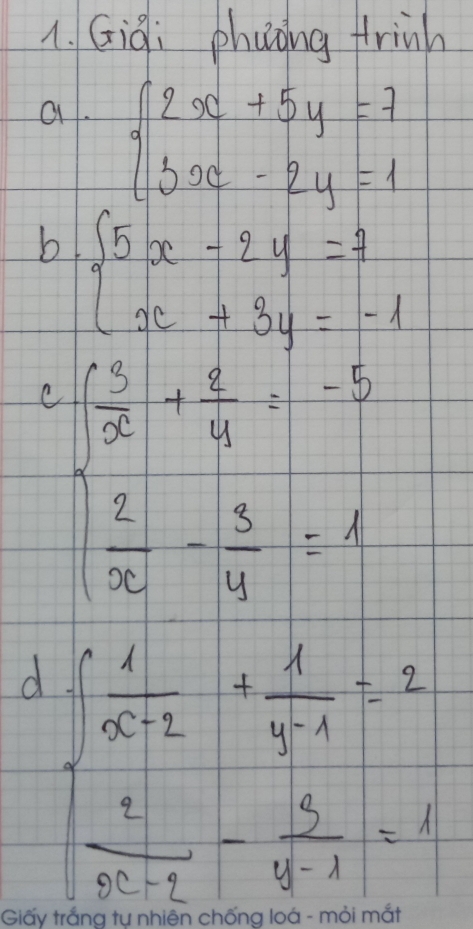 1. Giải phương trình
a. { 2x + 5y = 7
3x - 2y = 1
b. { 5x - 2y = 7
x + 3y = -1
c { 3/x + 2/y = -5
2/x - 3/y = 1
d. { 1/(x-2) + 1/(y-1) = 2
2/(x-2) - 3/(y-1) = 1
Giấy trắng tự nhiên chống loá - mỏi mắt